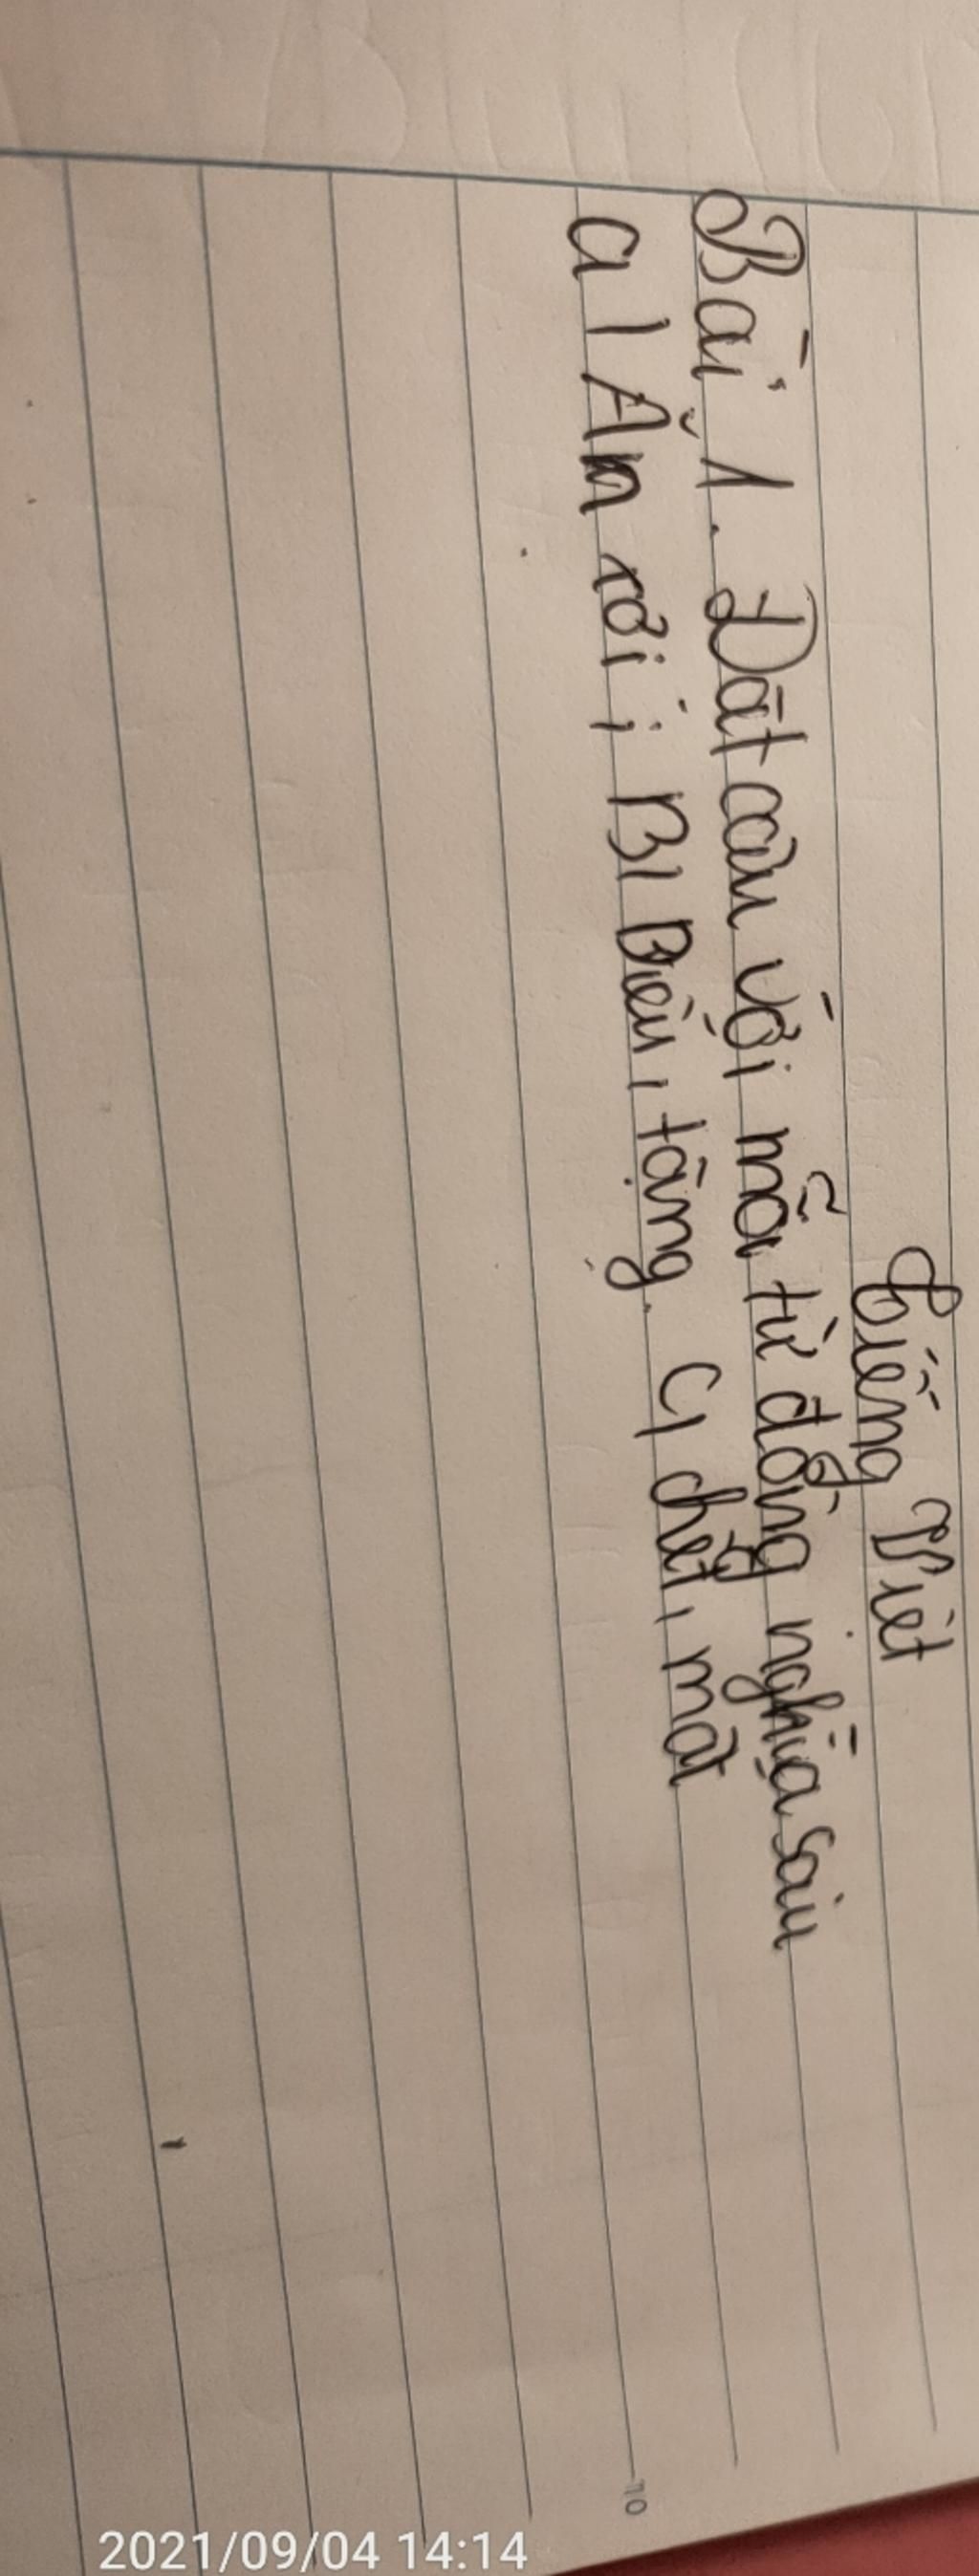 Tiếng Việt
Bài 1. Đặt câu với mỗi từ đồng nghĩa sau
a) Ăn xơi; B) Biếu, tặng. C) chết, mất
10
2021/09/04 14:14